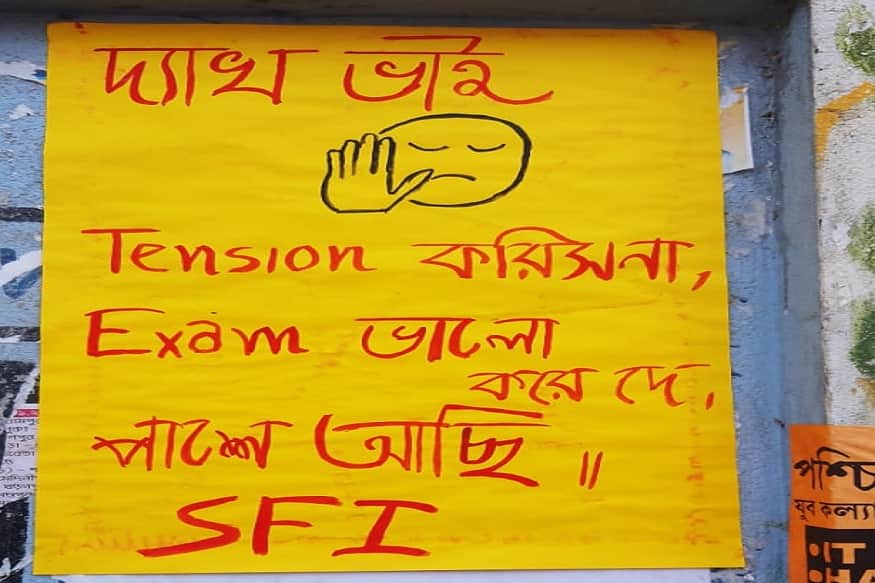 দ্যাখ ভাই
Tension করিসনা,
Exam ভালো
করে দে,
পাশে আছি॥
SFI
পশ্চি
যুব কল্যা